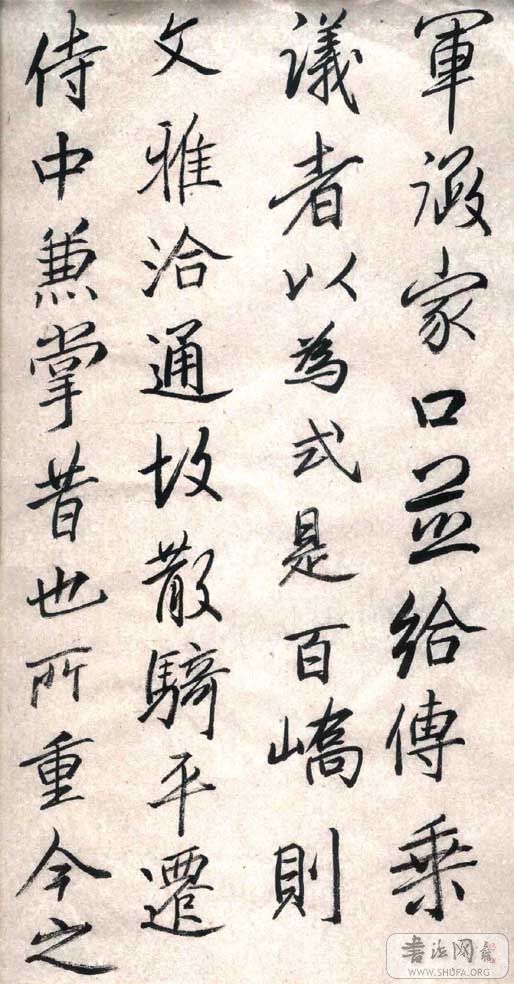 軍瀫家口並給傳乘
議者以為式是百嶠則
文雅洽通故散騎平遷
侍中兼掌昔也所重今之
書法网
WWW.SHUFA.ORG